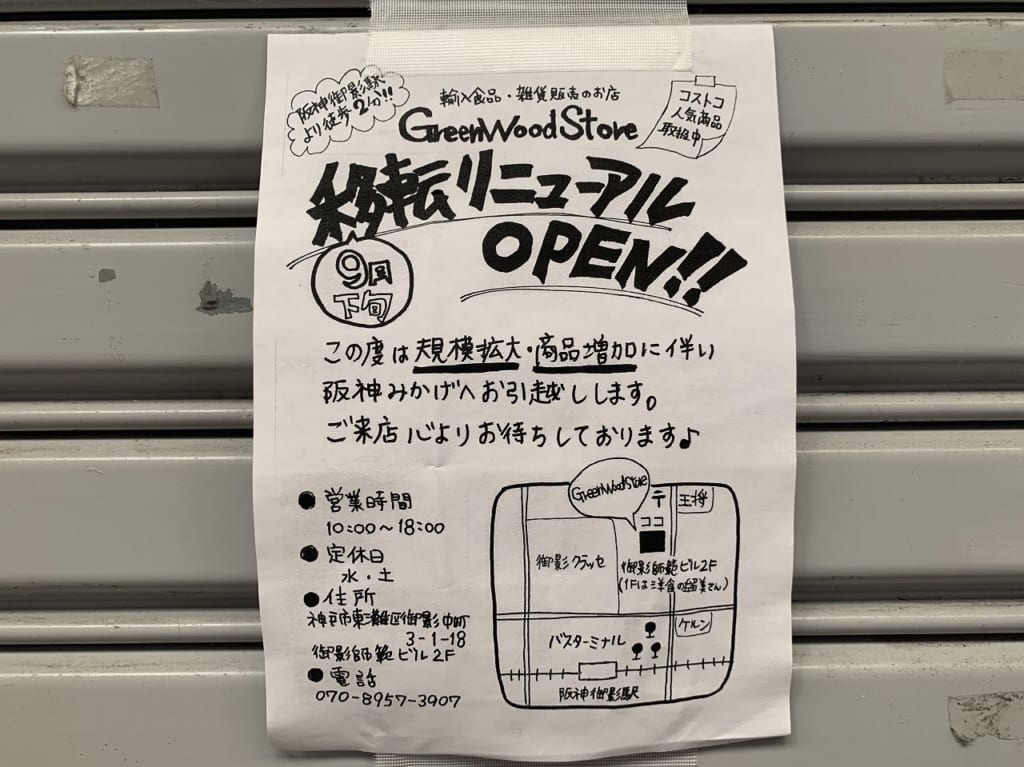 阪神御影駅
より徒歩2分!!
輸入食品・雑貨販売のお店
GreenWoodStore
コストコ
人気商品
取扱中
移転リニューアル
OPEN!!
9月
下旬
この度は規模拡大・商品増加に伴い
阪神みかげへお引越しします。
ご来店心よりお待ちしております♪
●営業時間
10:00〜18:00
●定休日
水・土
●住所
神戸市東灘区御影中町
3-1-18
御影師範ビル2F
●電話
070-8957-3907
GreenWoodStore
〒
王将
ココ
御影クラッセ
御影師範ビル2F
(1Fは洋食の留美さん)
バスターミナル
ケルン
阪神御影駅